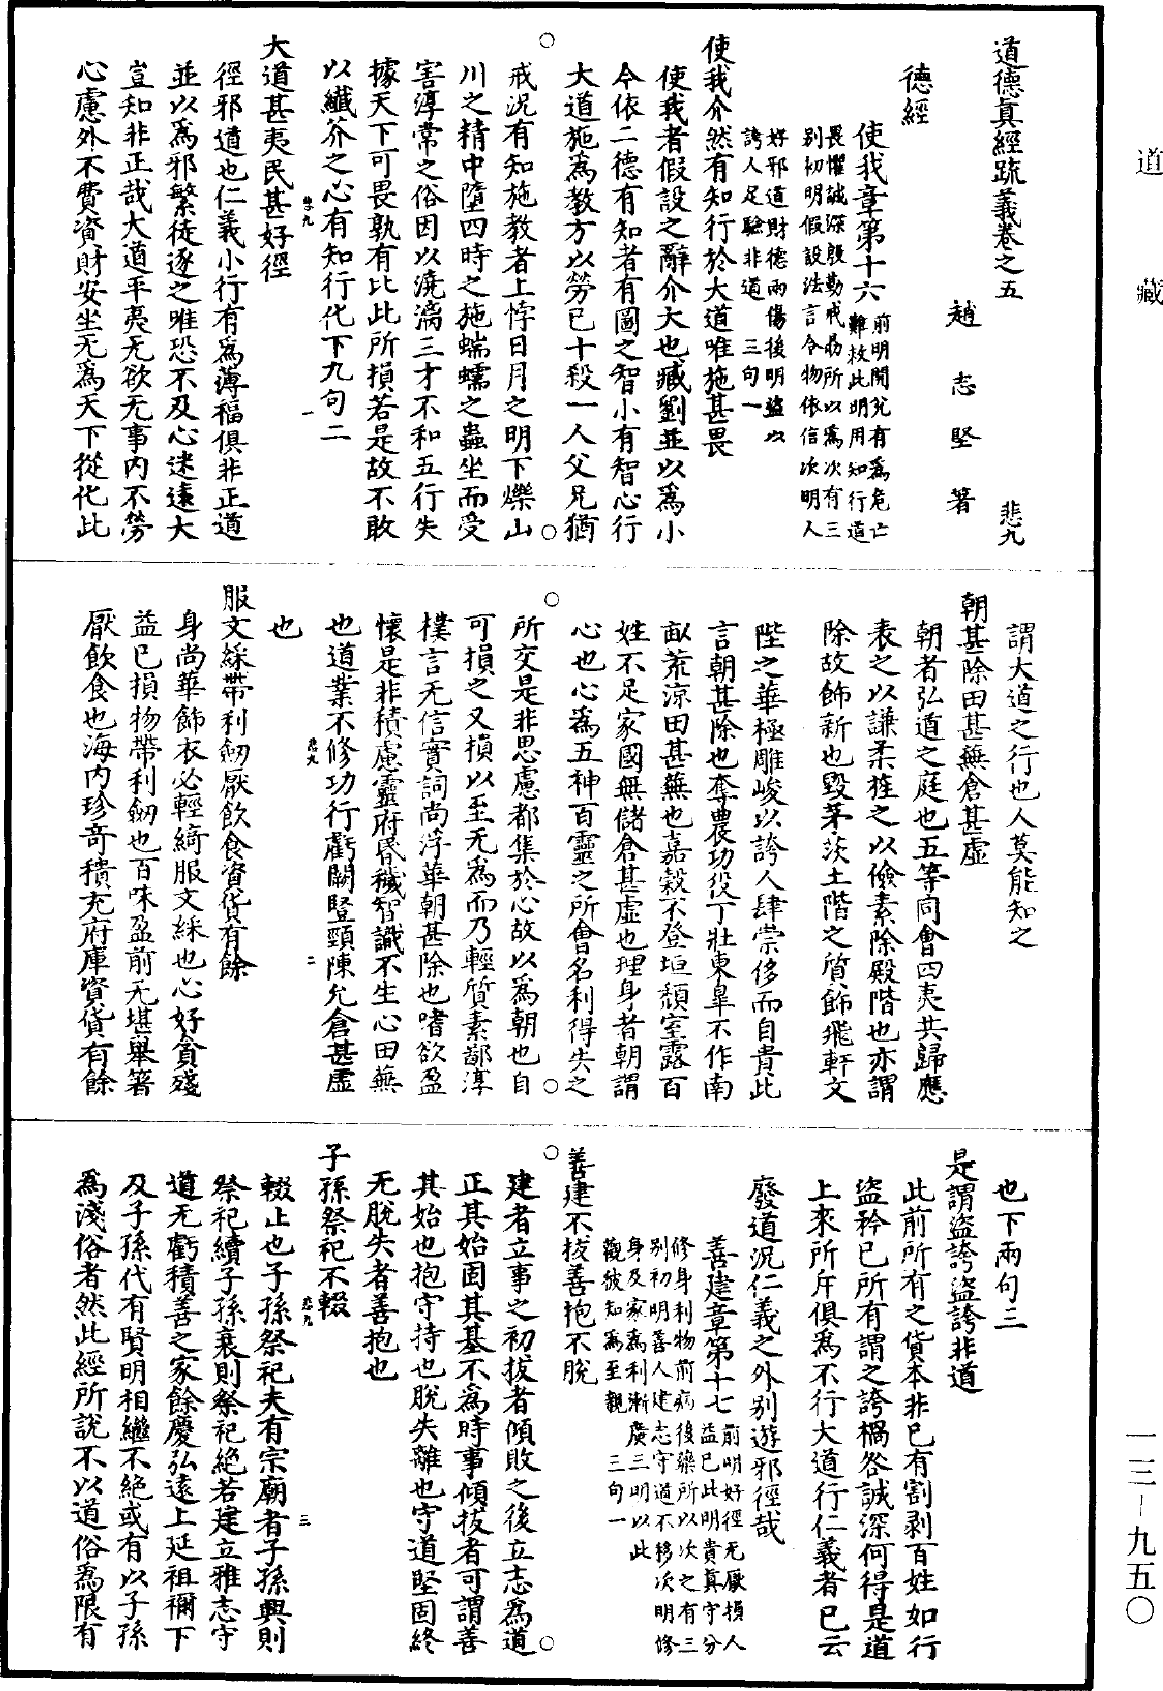 道藏
道德真經疏義卷之五
悲九
趙志堅著
德經
使我章第十六
前明開兊有為危亡
難救此明用知行道
畏懼誠深殷勤戒勗所以為次有三
別初明假設法言令物依信次明人
好邪道財德兩傷後明盜以
誇人足驗非道 三句一
使我介然有知行於大道唯施甚畏
使我者假設之辭介大也臧劉並以為小
今依二德有知者有圖之智小有智心行
大道施為教方以勞已十殺一人父兄猶
戒況有知施教者上悖日月之明下爍山
川之精中墮四時之施蝡蠕之蟲坐而受
害淳常之俗因以澆漓三才不和五行失
據天下可畏孰有比此所損若是故不敢
以纖芥之心有知行化下九句二
悲九 一
大道甚夷民甚好徑
徑邪道也仁義小行有為薄福俱非正道
並以為邪繁徒逐之唯恐不及心迷遠大
豈知非正哉大道平夷无欲无事内不勞
心慮外不費資財安坐无為天下從化此
謂大道之行也人莫能知之
朝甚除田甚蕪倉甚虛
朝者弘道之庭也五等同會四夷共歸應
表之以謙柔旌之以儉素除殿階也亦謂
除故飾新也毀茅茨土階之質飾飛軒文
陛之華極雕峻以誇人肆崇侈而自貴此
言朝甚除也奪農功役丁壯東皐不作南
畝荒涼田甚蕪也嘉穀不登垣頹室露百
姓不足家國無儲倉甚虛也理身者朝謂
心也心為五神百靈之所會名利得失之
所交是非思慮都集於心故以為朝也自
可損之又損以至无為而乃輕質素鄙淳
樸言无信實詞尚浮華朝甚除也嗜欲盈
懷是非積慮靈府昏穢智識不生心田蕪
也道業不修功行虧闕豎頸陳允倉甚虛
悲九 二
也
服文綵帶利劒厭飲食資貨有餘
身尚華飾衣必輕綺服文綵也心好貪殘
益已損物帶利劒也百味盈前无堪舉箸
厭飲食也海内珍奇積充府庫資貨有餘
也下兩句三
是謂盜誇盜誇非道
此前所有之貨本非已有割剥百姓如行
盜矜已所有謂之誇禍咎誠深何得是道
上來所斥俱為不行大道行仁義者已云
廢道況仁義之外别遊邪徑哉
善建章第十七
前明好徑无厭損人
益已此明貴真守分
修身利物前病後藥所以次之有三
別初明善人建志守道不移次明修
身及家為利漸廣三明以此
觀彼知為至親 三句一
善建不拔善抱不脫
建者立事之初拔者傾敗之後立志為道
正其始固其基不為時事傾拔者可謂善
其始也抱守持也脫失離也守道堅固終
无脫失者善抱也
子孫祭祀不輟
悲九 三
輟止也子孫祭祀夫有宗廟者子孫興則
祭祀續子孫衰則祭祀絶若建立雅志守
道无虧積善之家餘慶弘遠上延祖禰下
及子孫代有賢明相繼不絶或有以子孫
為淺俗者然此經所說不以道俗為限有
一三—九五〇